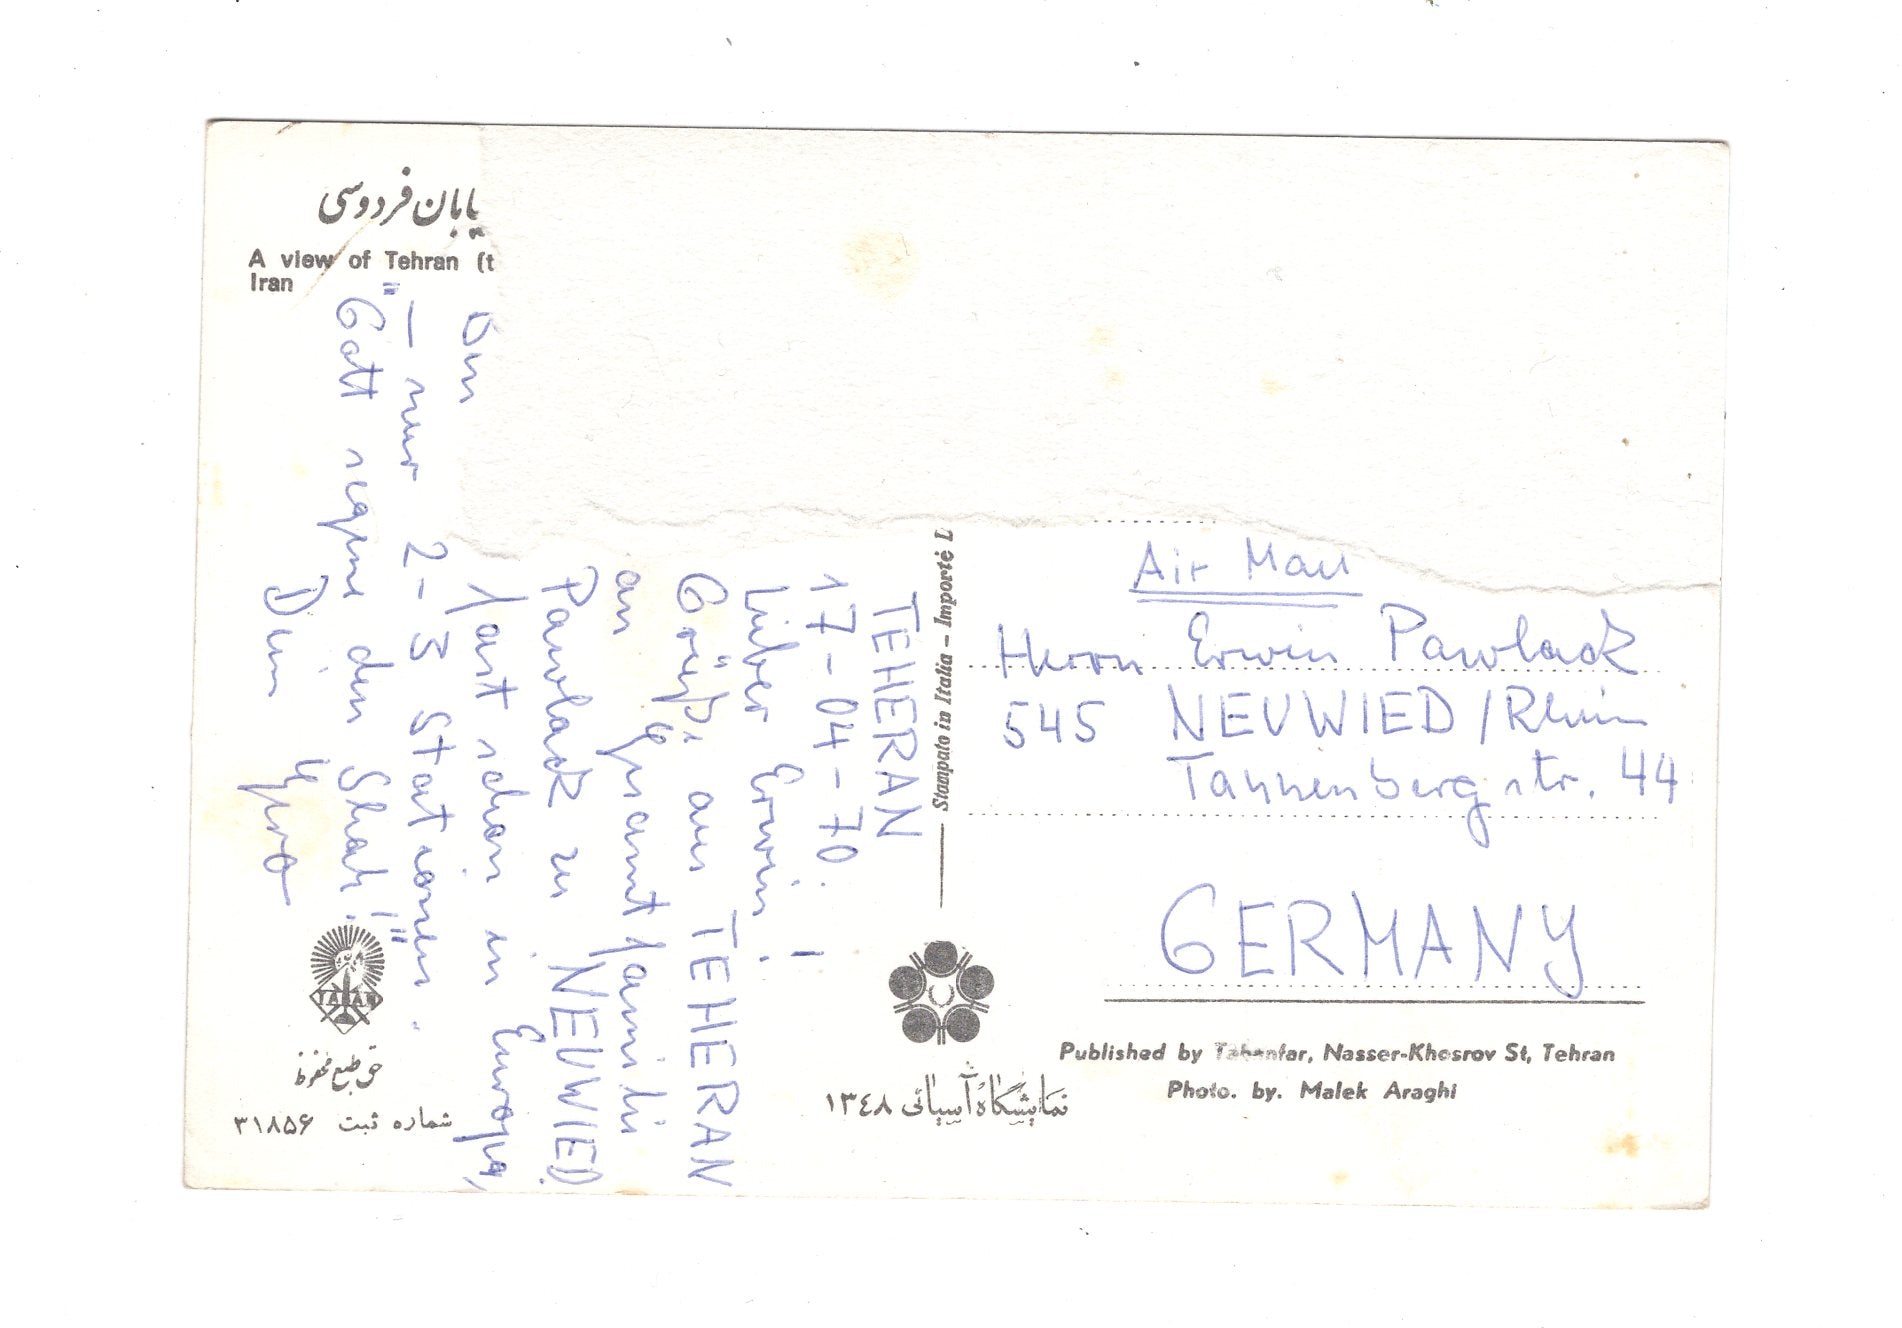 یابان فردوسی
A view of Tehran (t
Iran
TEHERAN
17-04-70.
Lieber Erwin!
Grüße aus TEHERAN
an Gesamtfamilie
Pawlack zu NEUWIED.
fast schon in Europa,
– nur 2-3 Stationen.
"Gott segne den Shah!"
Dein
Stampato in Italia - Importé
Air Mail
Herrn Erwin Pawlack
545 NEUWIED/Rhein
Tannenbergstr. 44
GERMANY
TABAN
حق طبع محفوظ
شماره ثبت ۳۱۸۵۶
نمایشگاه آسیائی ۱۳۴۸
Published by Tabanfar, Nasser-Khosrov St, Tehran
Photo. by. Malek Araghi